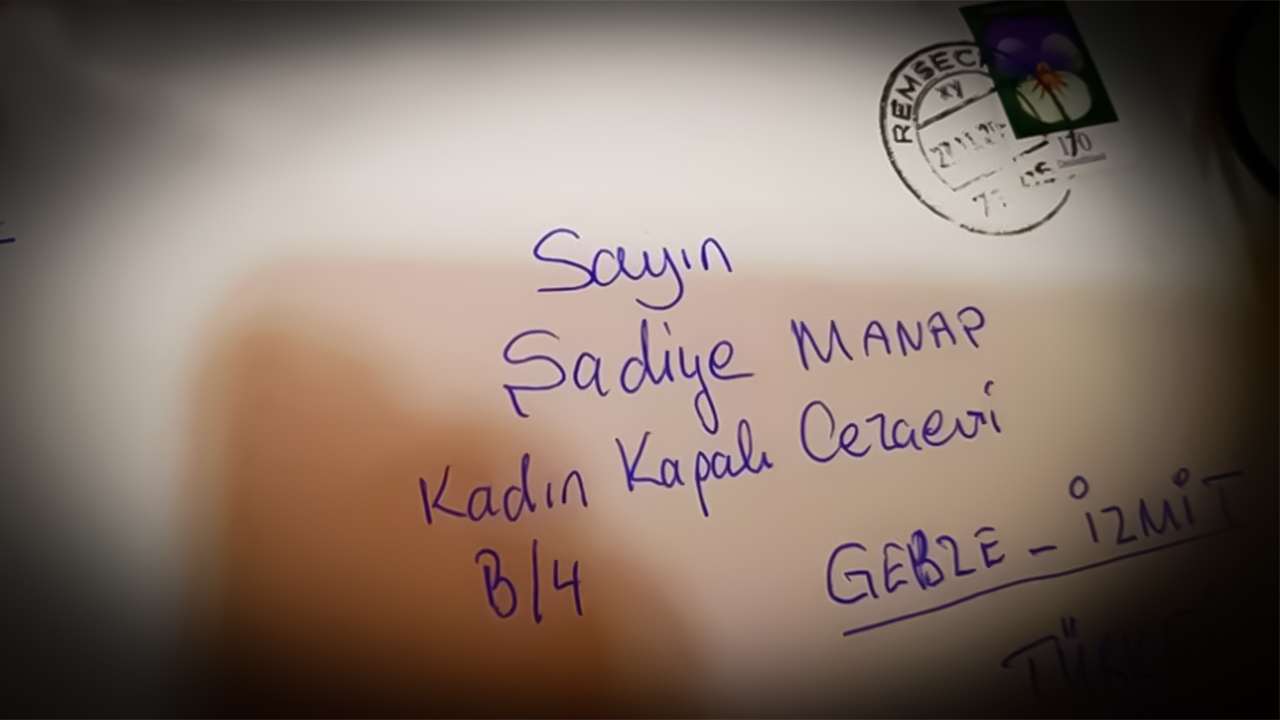 REMSECK
170
Sayın
Şadiye MANAP
Kadın Kapalı Cezaevi
B/4
GEBZE - İZMİT